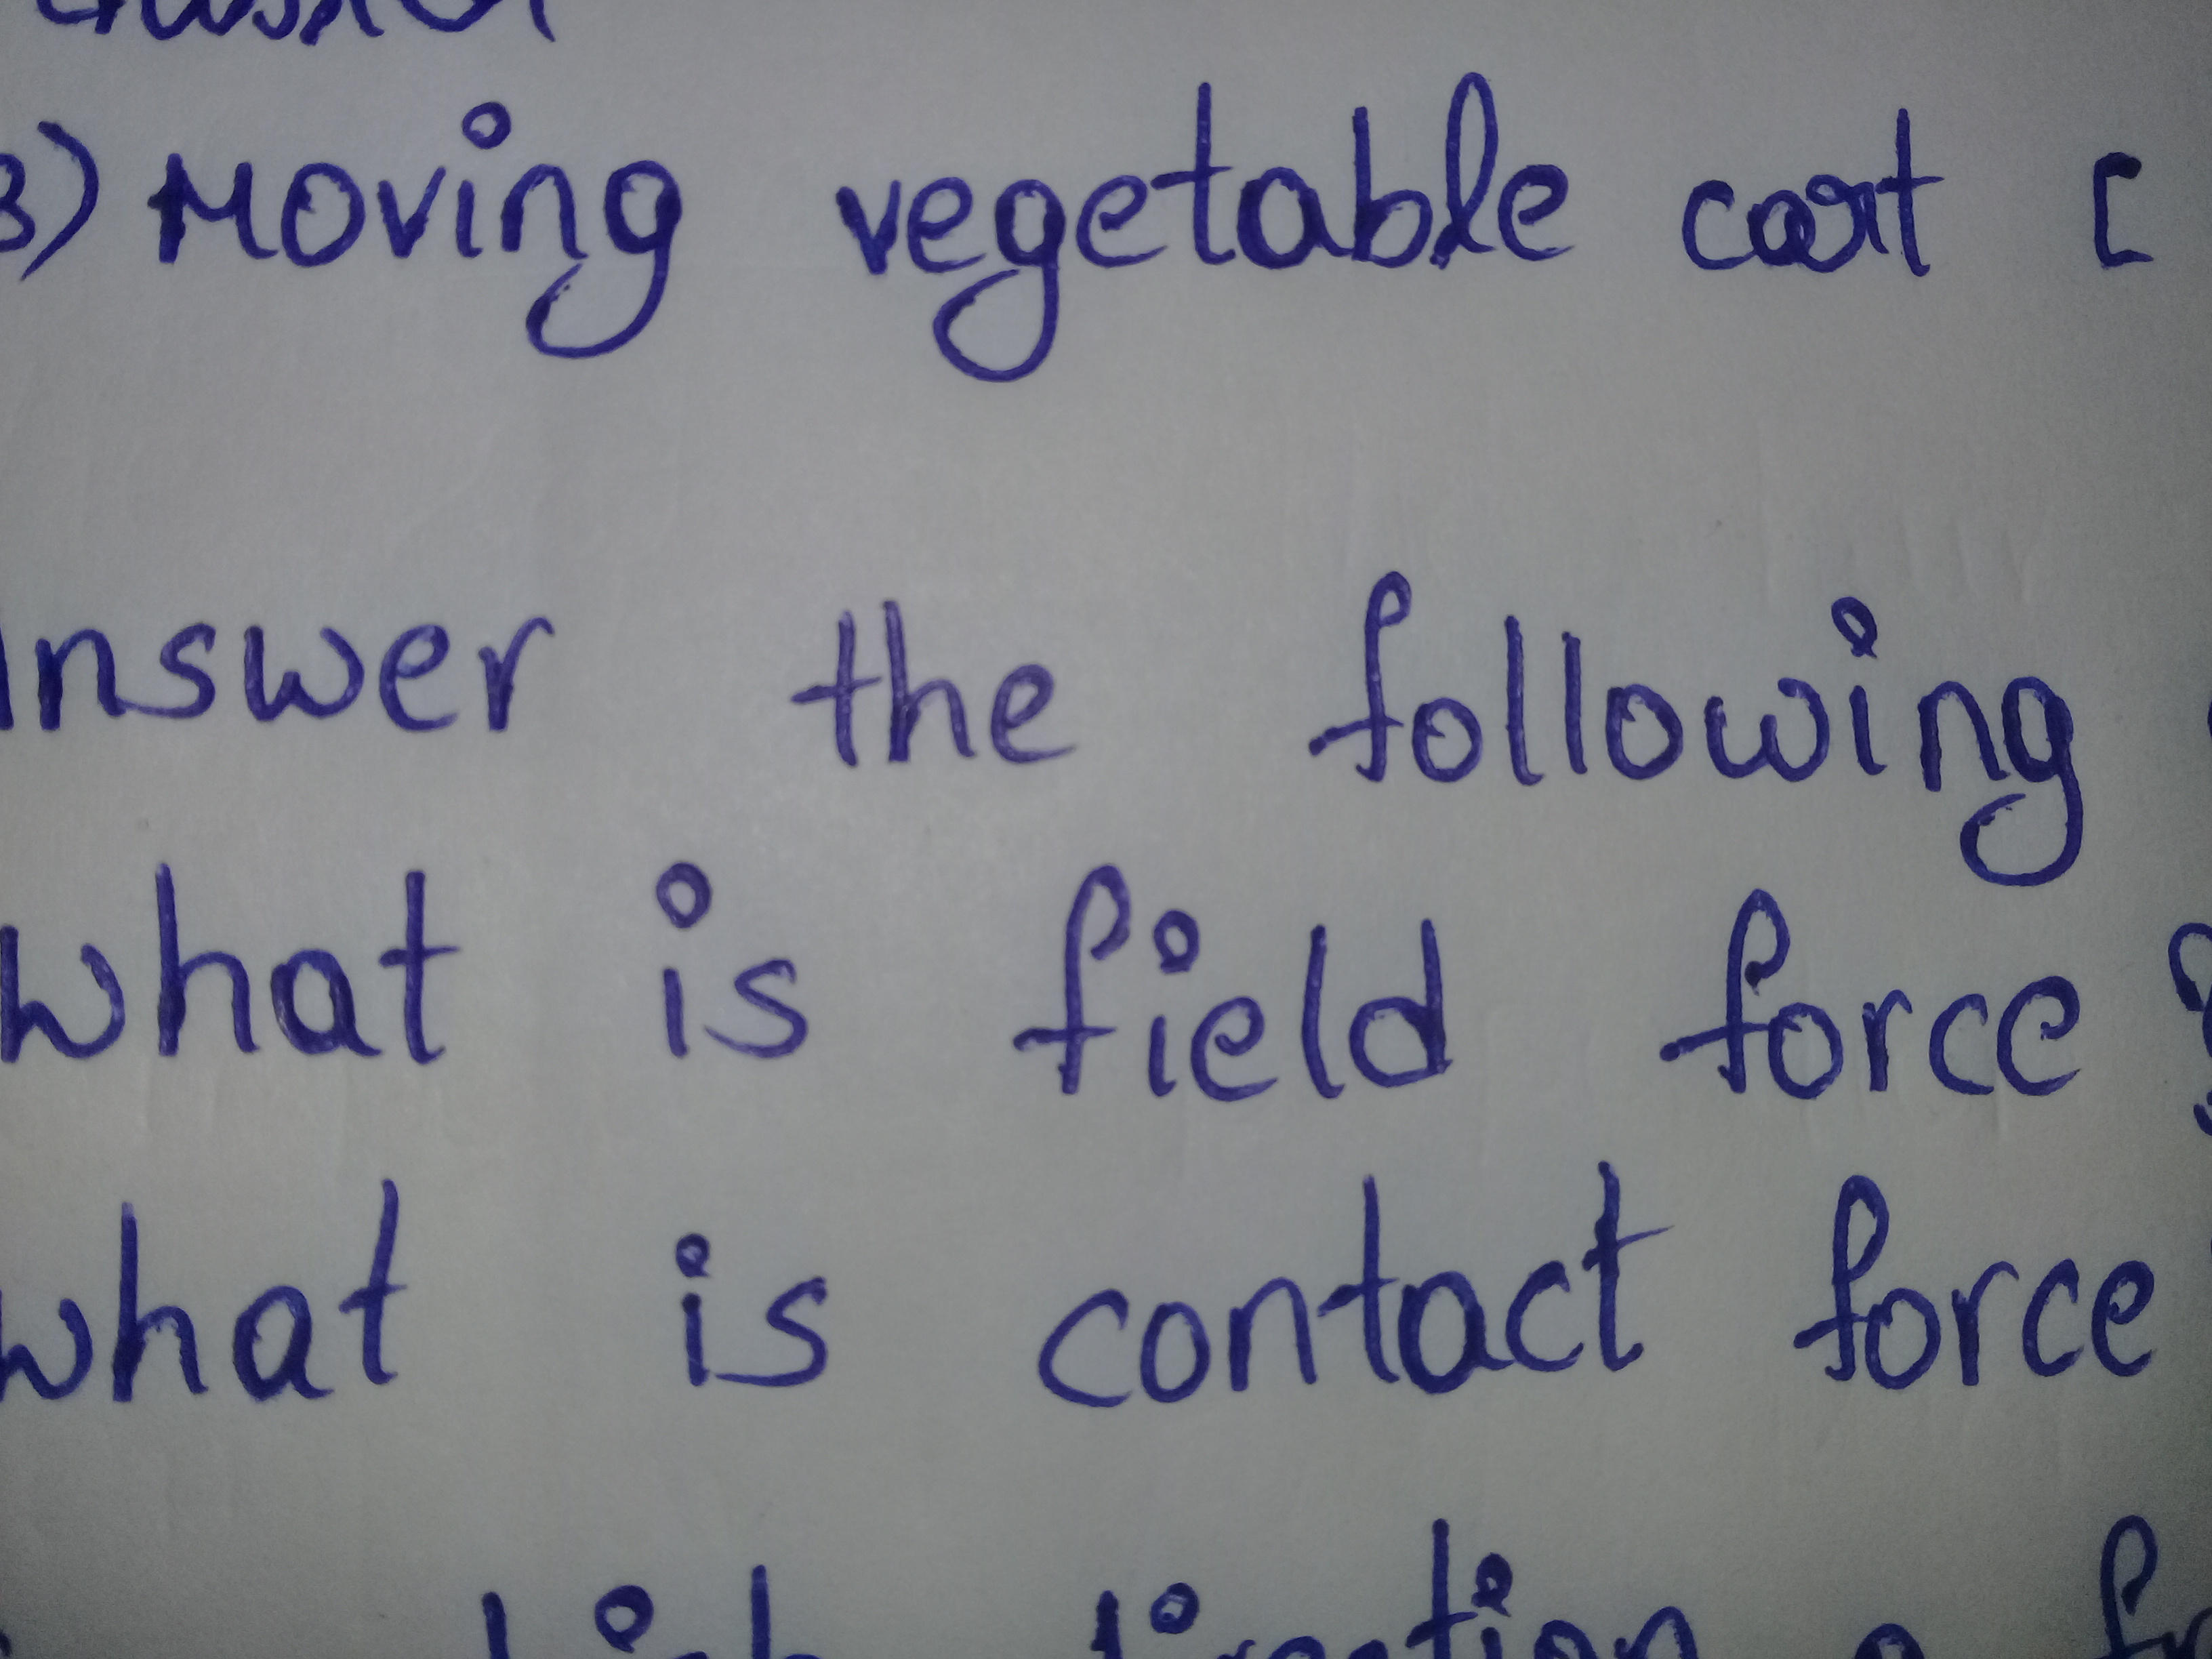 3) Moving vegetable cart [
nswer the following
what is field force ?
what is contact force
direction a